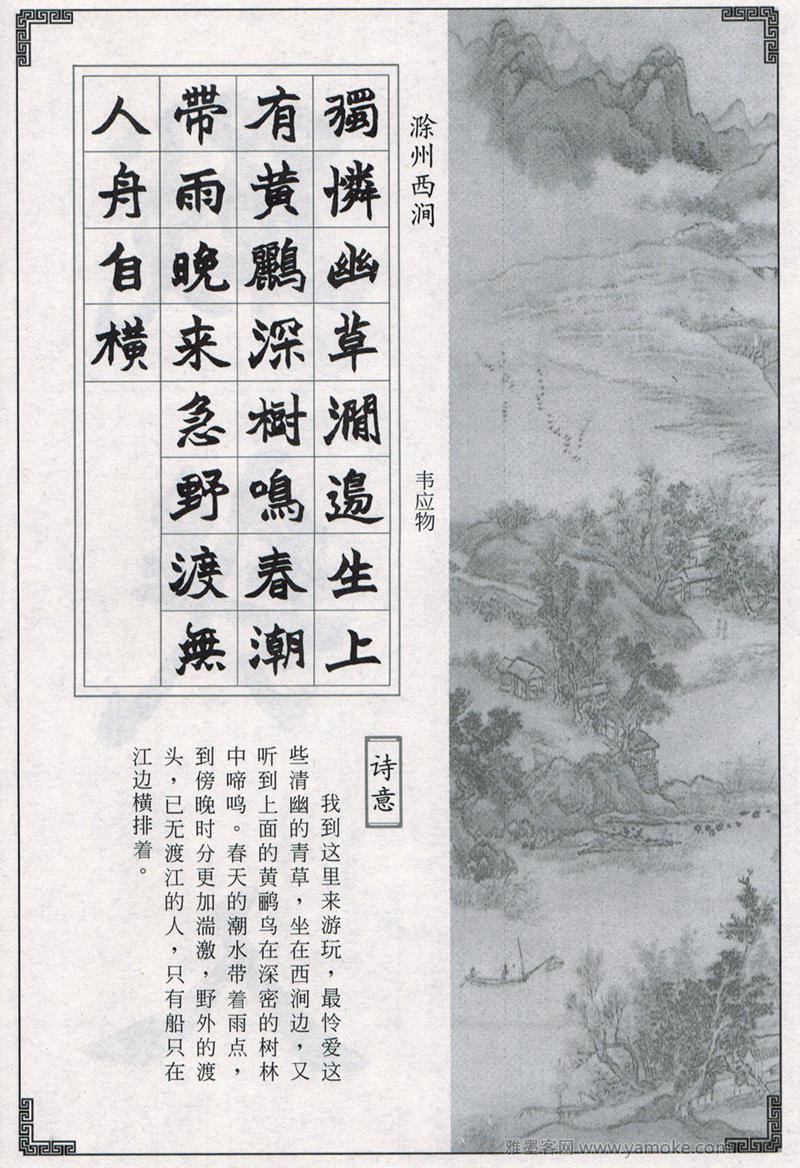 滁州西涧
韦应物
獨憐幽草澗邊生上
有黃鸝深樹鳴春潮
帶雨晚来急野渡無
人舟自橫
诗意
我到这里来游玩，最怜爱这
些清幽的青草，坐在西涧边，又
听到上面的黄鹂鸟在深密的树林
中啼鸣。春天的潮水带着雨点，
到傍晚时分更加湍激，野外的渡
头，已无渡江的人，只有船只在
江边横排着。
雅墨客网 www.yamoke.com